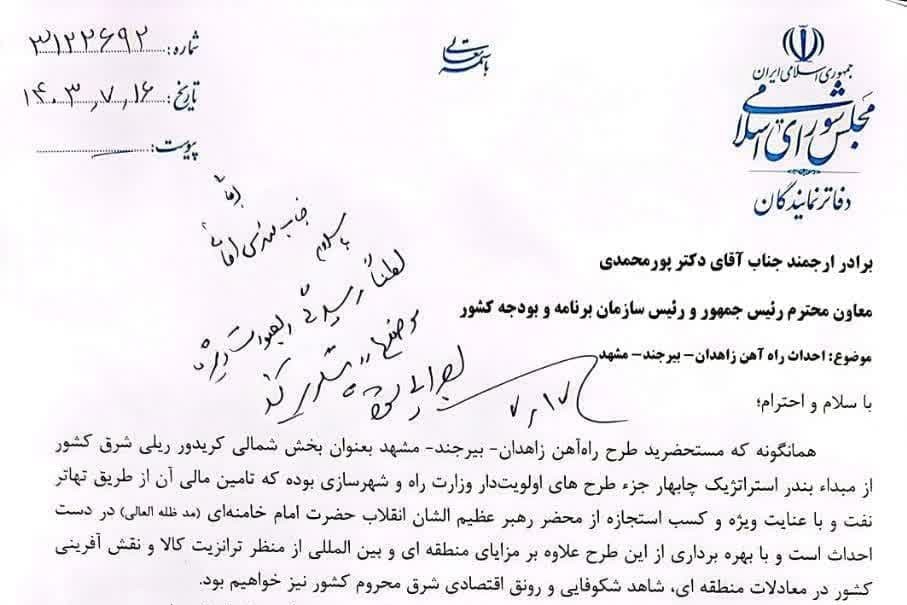 باسمه تعالی
جمهوری اسلامی ایران
مجلس شورای اسلامی
دفاتر نمایندگان
شماره: ۳۱۲۲۶۹۲
تاریخ: ۱۴۰۳٫۷٫۱۶
پیوست:
برادر ارجمند جناب آقای دکتر پورمحمدی
معاون محترم رئیس جمهور و رئیس سازمان برنامه و بودجه کشور
موضوع: احداث راه آهن زاهدان- بیرجند- مشهد
با سلام و احترام؛
جناب مهندس
با سلام
لطفاً رسیدگی
۷٫۱۷
همانگونه که مستحضرید طرح راه‌آهن زاهدان- بیرجند- مشهد بعنوان بخش شمالی کریدور ریلی شرق کشور
از مبداء بندر استراتژیک چابهار جزء طرح های اولویت‌دار وزارت راه و شهرسازی بوده که تامین مالی آن از طریق تهاتر
نفت و با عنایت ویژه و کسب استجازه از محضر رهبر عظیم الشان انقلاب حضرت امام خامنه‌ای (مد ظله العالی) در دست
احداث است و با بهره برداری از این طرح علاوه بر مزایای منطقه ای و بین المللی از منظر ترانزیت کالا و نقش آفرینی
کشور در معادلات منطقه ای، شاهد شکوفایی و رونق اقتصادی شرق محروم کشور نیز خواهیم بود.